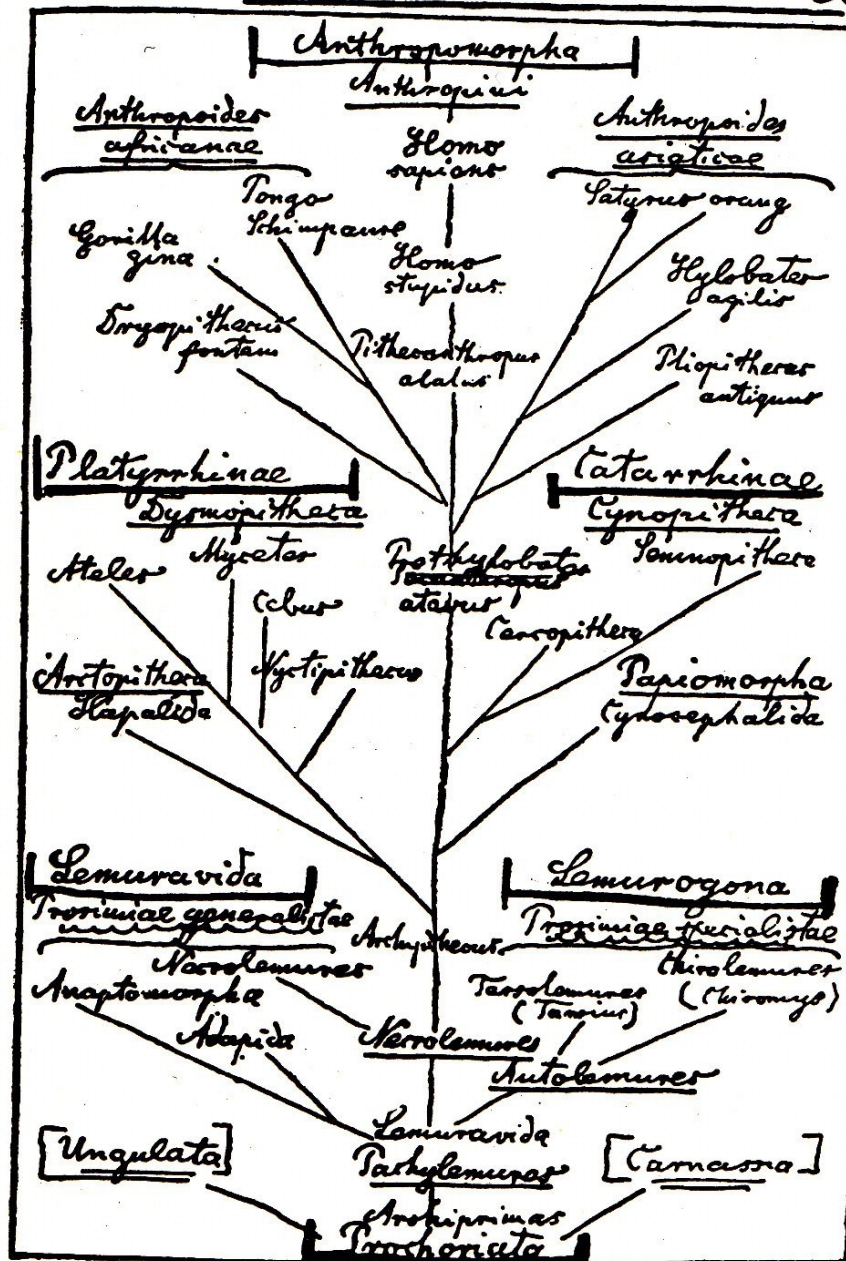 Anthropomorpha
Anthropini
Anthropoides
africanae
Homo
sapiens
Anthropoides
asiaticae
Pongo
Schimpanse
Satyrus orang
Gorilla
gina
Homo
stupidus
Hylobates
agilis
Dryopithecus
fontani
Pithecanthropus
alalus
Pliopithecus
antiquus
Platyrrhinae
Dysmopitheca
Catarrhinae
Cynopitheca
Ateles
Mycetes
Cebus
Nyctipithecus
Prothylobates
atavus
Semnopitheca
Cercopitheca
Arctopitheca
Hapalida
Papiomorpha
Cynocephalida
Lemuravida
Prosimiae generalistae
Lemurogona
Prosimiae specialistae
Archipithecus
Necrolemures
Anaptomorpha
Adapida
Tarsolemures
(Tarsius)
Chirolemures
(Chiromys)
Necrolemures
Autolemures
Lemuravida
Pachylemures
[Ungulata]
[Carnassia]
Archiprimas
Prochoriata